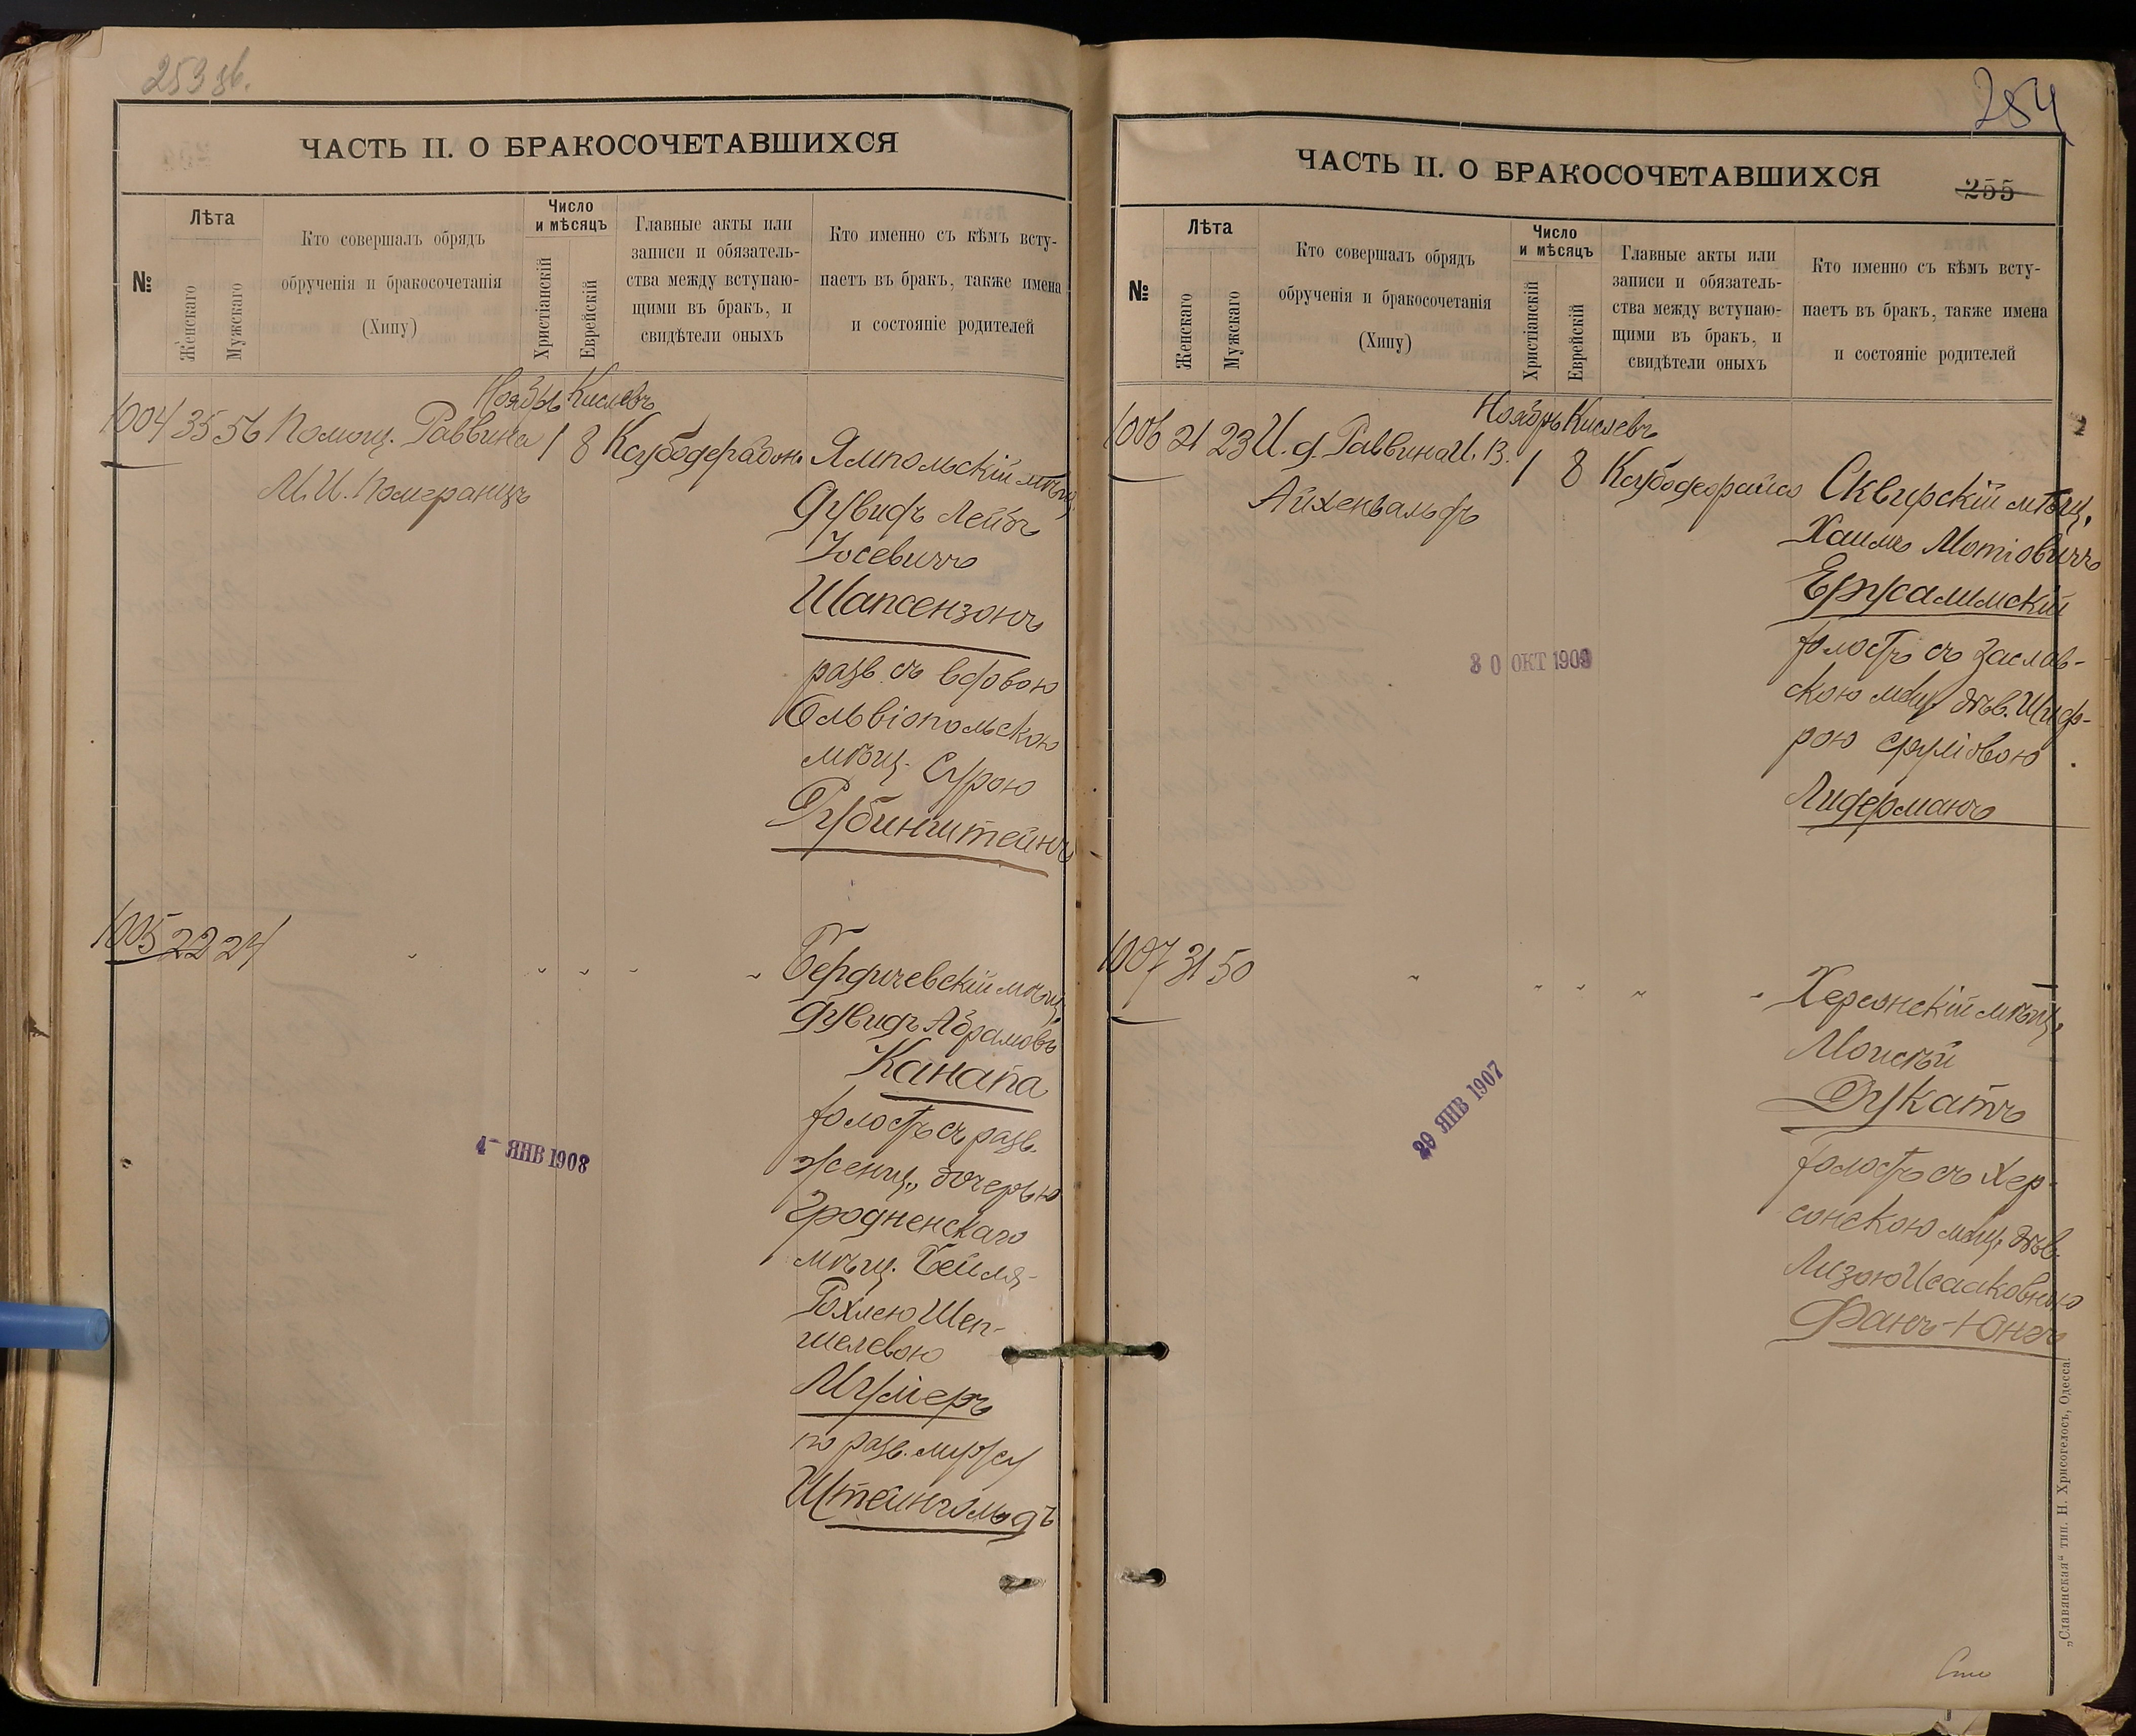 253 зв.
ЧАСТЬ II. О БРАКОСОЧЕТАВШИХСЯ
№
Лѣта
Женскаго
Мужскаго
Кто совершалъ обрядъ
обрученія и бракосочетанія
(Хипу)
Число
и мѣсяцъ
Христіанскій
Еврейскій
Главные акты или
записи и обязатель-
ства между вступаю-
щими въ бракъ, и
свидѣтели оныхъ
Кто именно съ кѣмъ всту-
паетъ въ бракъ, также имена
и состояніе родителей
Ноябрь Кислевъ
1004 35 56 Помощ. Раввина 1 8 Ксубодерайон. Ямпольскій мѣщ.
М. И. Померанцъ
Дувидъ Лейбъ
Іосевичъ
Шапсензонъ
разв. съ вдовою
Ольвіопольскою
мѣщ. Сурою
Рубинштейнъ
1005 22 24 " " " " " Бердичевскій мѣщ.
Дувидъ Абрамовъ
Канапа
холостъ съ разв.
женщ., дочерью
Гродненскаго
мѣщ. Бейля-
Рохлею Шеп-
шелевою
Мулеръ
по разв. мужу
Штейнгольдъ
4- ЯНВ 1908
254
ЧАСТЬ II. О БРАКОСОЧЕТАВШИХСЯ
255
№
Лѣта
Женскаго
Мужскаго
Кто совершалъ обрядъ
обрученія и бракосочетанія
(Хипу)
Число
и мѣсяцъ
Христіанскій
Еврейскій
Главные акты или
записи и обязатель-
ства между вступаю-
щими въ бракъ, и
свидѣтели оныхъ
Кто именно съ кѣмъ всту-
паетъ въ бракъ, также имена
и состояніе родителей
Ноябрь Кислевъ
1006 21 23 И. д. Раввина И. В. 1 8 Ксубодерайсо Сквирскій мѣщ.
Айхенвальдъ
Хаимъ Мотіовичъ
Ерусалимскій
холостъ съ Заслав-
скою мѣщ. дѣв. Шиф-
рою Сруліовою
Лидерманъ
30 ОКТ 1909
1007 31 50 " " " " " Херсонскій мѣщ.
Моисѣй
Дукатъ
холостъ съ Хер-
сонскою мѣщ. дѣв.
Лизою Исааковною
Фанъ-Юнгъ
29 ЯНВ 1907
„Славянская“ тип. Н. Хрисогелосъ, Одесса.